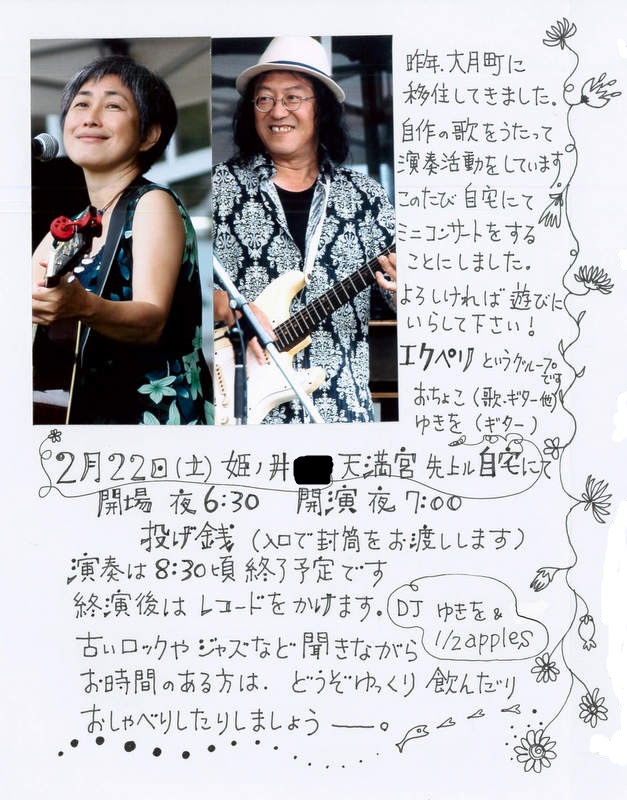 昨年、大月町に
移住してきました。
自作の歌をうたって
演奏活動をしています
このたび 自宅にて
ミニコンサートをする
ことにしました。
よろしければ 遊びに
いらして下さい！
エクペリ というグループ
です
おちょこ（歌・ギター他）
ゆきを（ギター）
2月22日（土）姫ノ井 天満宮 先上ル 自宅にて
開場 夜6:30 開演 夜7:00
投げ銭（入口で封筒をお渡しします）
演奏は 8:30頃 終了予定です
終演後は レコードをかけます。
DJ ゆきを &
1/2 apples
古いロックや ジャズなど 聞きながら
お時間のある方は、どうぞゆっくり 飲んだり
おしゃべりしたりしましょう ――。